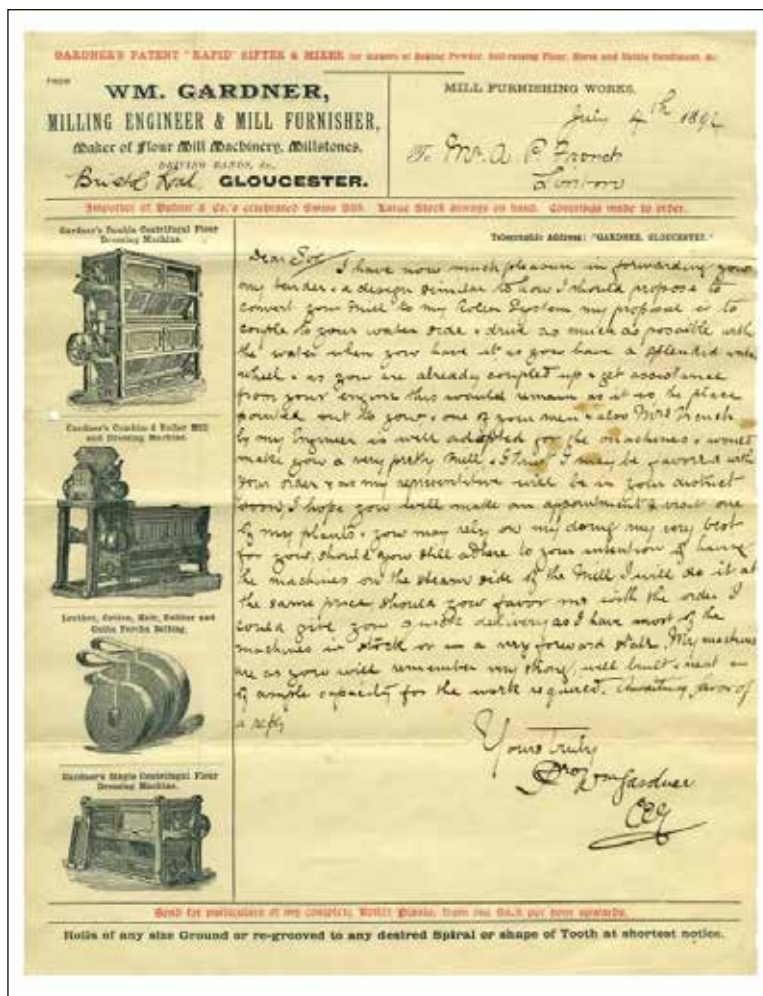 GARDNER'S PATENT "RAPID" SIFTER & MIXER for makers of Baking Powder, Self-raising Flour, Horse and Cattle Condiment, &c.
FROM
WM. GARDNER,
MILLING ENGINEER & MILL FURNISHER,
Maker of Flour Mill Machinery, Millstones,
DRIVING BANDS, &c.
Bristol Road, GLOUCESTER.
MILL FURNISHING WORKS,
4th 1892
To Mr. A. P. French
London
Importer of Dufour & Co.'s celebrated Swiss Silk. Large Stock always on hand. Coverings made to order.
Telegraphic Address: "GARDNER, GLOUCESTER."
Gardner's Double Centrifugal Flour
Dressing Machine.
Gardner's Combined Roller Mill
and Dressing Machine.
Leather, Cotton, Hair, Rubber and
Gutta Percha Belting.
Gardner's Single Centrifugal Flour
Dressing Machine.
Dear Sir
I have now much pleasure in forwarding you
my tender & a design similar to how I should propose to
convert your Mill to my Roller System my proposal is to
couple to your water side & drive as much as possible with
the water when you have it as you have a splendid water
wheel & as you are already coupled up & get assistance
from your engine this would remain as it is the place
pointed out to you & one of your men & also Mrs French
by my Engineer is well adapted for the machines & would
make you a very pretty Mill & I trust I may be favored with
your order & as my representative will be in your district
soon I hope you will make an appointment & visit one
of my plants, you may rely on my doing my very best
for you, should you still adhere to your intention of having
the machines on the steam side of the Mill I will do it at
the same price should you favor me with the order I
could give you quick delivery as I have most of the
machines in stock or in a very forward state. My machines
are as you will remember very strong, well built & neat
of ample capacity for the work required. Awaiting favor of
a reply
Yours Truly
pro Wm Gardner
Send for particulars of my complete Roller Plants, from one Sack per hour upwards.
Rolls of any size Ground or re-grooved to any desired Spiral or shape of Tooth at shortest notice.